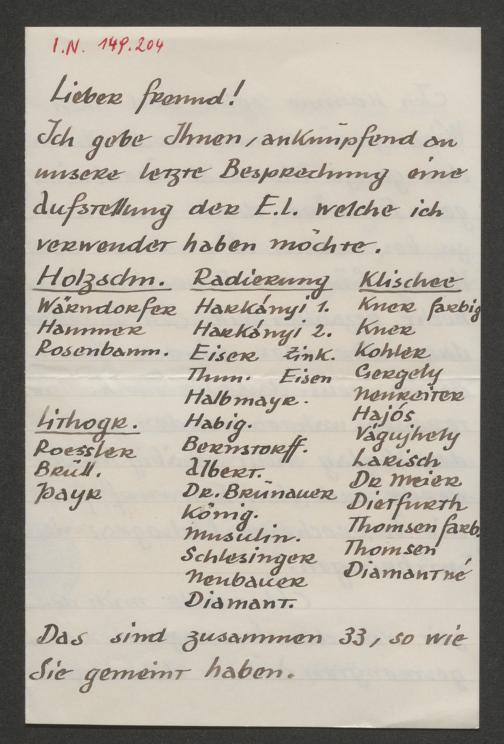 I.N. 149.204
Lieber Freund!
Ich gebe Ihnen, anknüpfend an
unsere letzte Besprechung eine
Aufstellung der E.L. welche ich
verwendet haben möchte.
Holzschn. Radierung Klischee
Wärndorfer Harkányi 1. Kner farbig
Hammer Harkányi 2. Kner
Rosenbaum. Eiser Zink. Kohler
Thum. Eisen Gergely
Halbmayr. Neureiter
Lithogr. Habig. Hajós
Roessler Bernstorff. Vágujhely
Brüll. Albert. Larisch
Payr Dr. Brünauer Dr Meier
König. Dietfurth
Musulin. Thomsen farb.
Schlesinger Thomsen
Neubauer Diamantné
Diamant.
Das sind zusammen 33, so wie
Sie gemeint haben.